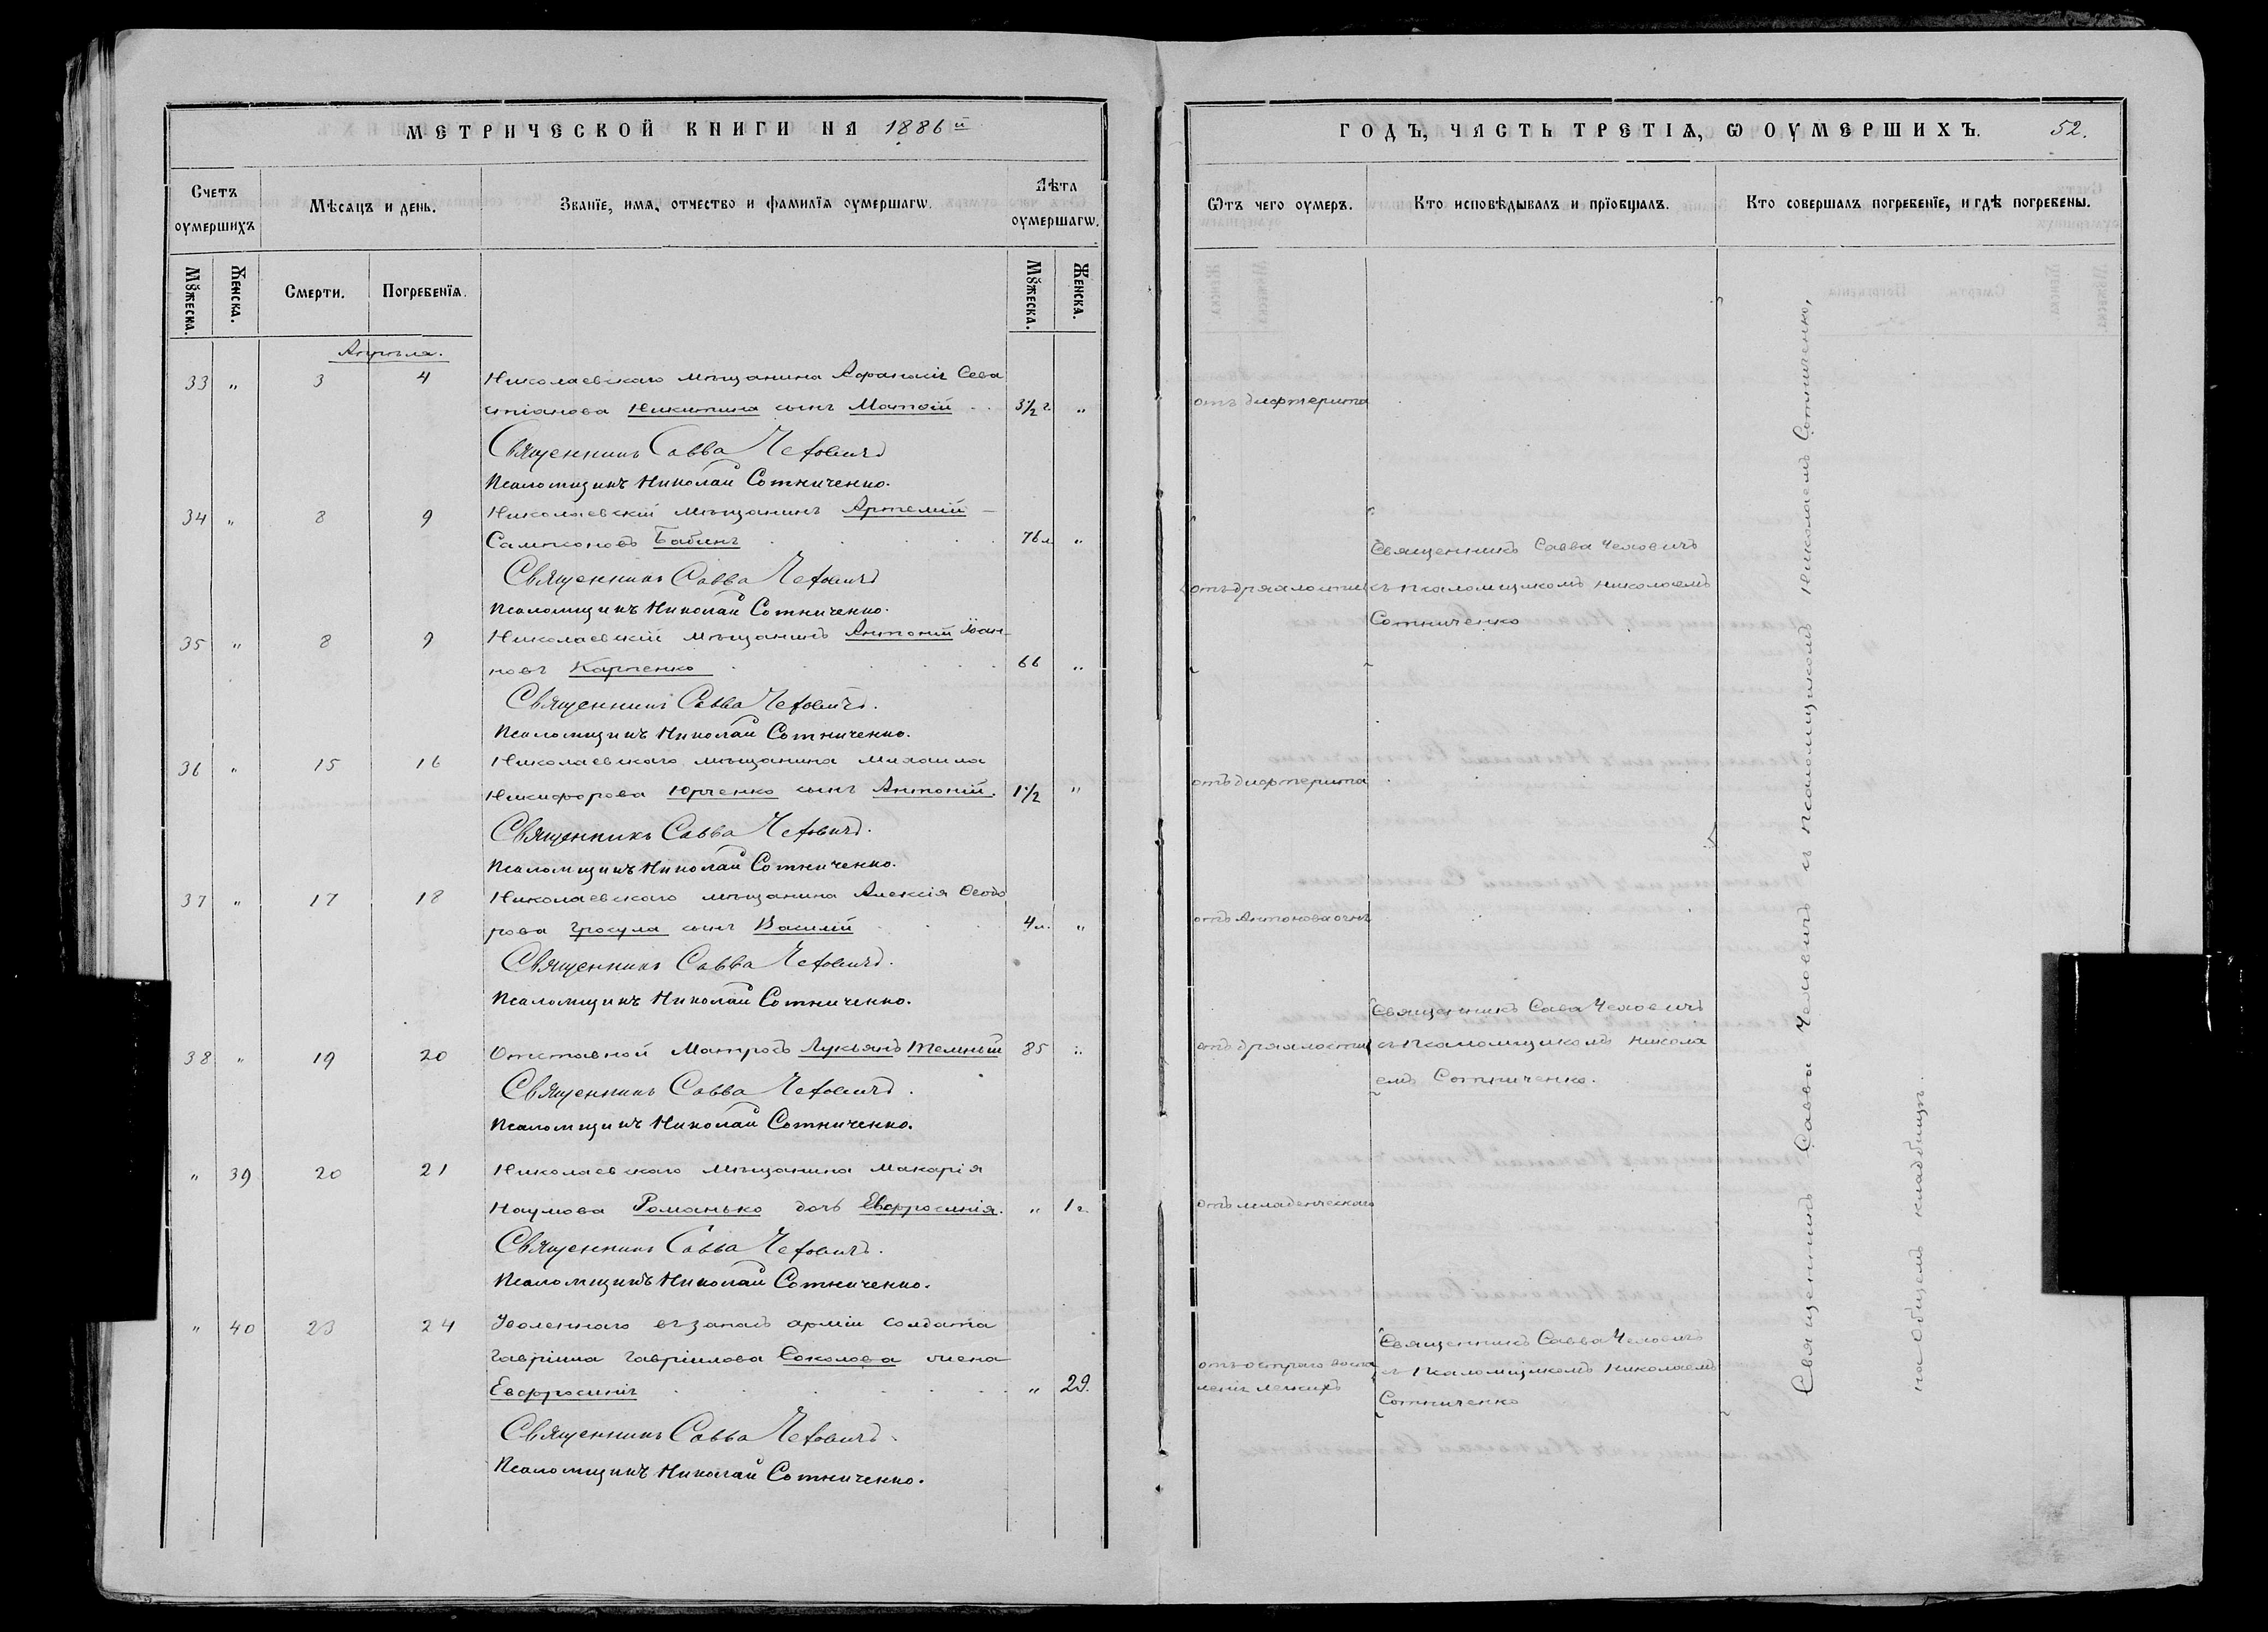 МЕТРИЧЕСКОЙ КНИГИ НА 1886й
Счетъ оумершихъ
Мѣсяцъ и день.
Званїе, имя, отчество и фамилїя оумершагѡ.
Лѣта оумершагѡ.
Мꙋжеска.
Женска.
Смерти.
Погребенїя.
Мꙋжеска.
Женска.
Апрѣля.
33 " 3 4 Николаевскаго мѣщанина Афанасія Сева
стіанова Никитина сынъ Матѳій 3½ г. "
Священникъ Савва Чехович
Псаломщикъ Николай Сотниченко.
34 " 8 9 Николаевскій мѣщанинъ Артемій
Сампсоновъ Бабинъ 76 л. "
Священникъ Савва Чеховичъ
Псаломщикъ Николай Сотниченко.
35 " 8 9 Николаевскій мѣщанинъ Антоній Іоан-
новъ Карпенко 66 "
Священникъ Савва Чеховичъ.
Псаломщикъ Николай Сотниченко.
36 " 15 16 Николаевскаго мѣщанина Михаила
Никифорова Юрченко сынъ Антоній. 1½ "
Священникъ Савва Чеховичъ.
Псаломщикъ Николай Сотниченко.
37 " 17 18 Николаевскаго мѣщанина Алексія Ѳеодо
рова Гросула сынъ Василій 4 л. "
Священникъ Савва Чеховичъ.
Псаломщикъ Николай Сотниченко.
38 " 19 20 Отставной Матросъ Лукьянъ Темный 85 "
Священникъ Савва Чеховичъ.
Псаломщикъ Николай Сотниченко.
" 39 20 21 Николаевскаго мѣщанина Макарія
Наумова Романько дочь Евфросинія. " 1 г.
Священникъ Савва Чеховичъ.
Псаломщикъ Николай Сотниченко.
" 40 23 24 Уволеннаго въ запасъ арміи солдата
Гавріила Гавріилова Соколова жена
Евфросинія " 29.
Священникъ Савва Чеховичъ.
Псаломщикъ Николай Сотниченко.
ГОДЪ, ЧАСТЬ ТРЕТІѦ, Ѡ ОУМЕРШИХЪ. 52.
Ѿтъ чего оумеръ.
Кто исповѣдывалъ и прїобщалъ.
Кто совершалъ погребенїе, и гдѣ погребены.
отъ дифтерита
отъ дряхлости
Священникъ Савва Чеховичъ
съ псаломщикомъ Николаемъ
Сотниченко
отъ дифтерита
отъ Антонова огня
отъ дряхлости
Священникъ Сава Чеховичъ
съ псаломщикомъ Никола
емъ Сотниченко.
отъ младенческаго
отъ остраго воспа
ленія легкихъ
Священникъ Савва Чеховичъ
съ псаломщикомъ Николаемъ
Сотниченко
Священникъ Савва Чеховичъ съ псаломщикомъ Николаемъ Сотниченко,
на общемъ кладбищѣ.